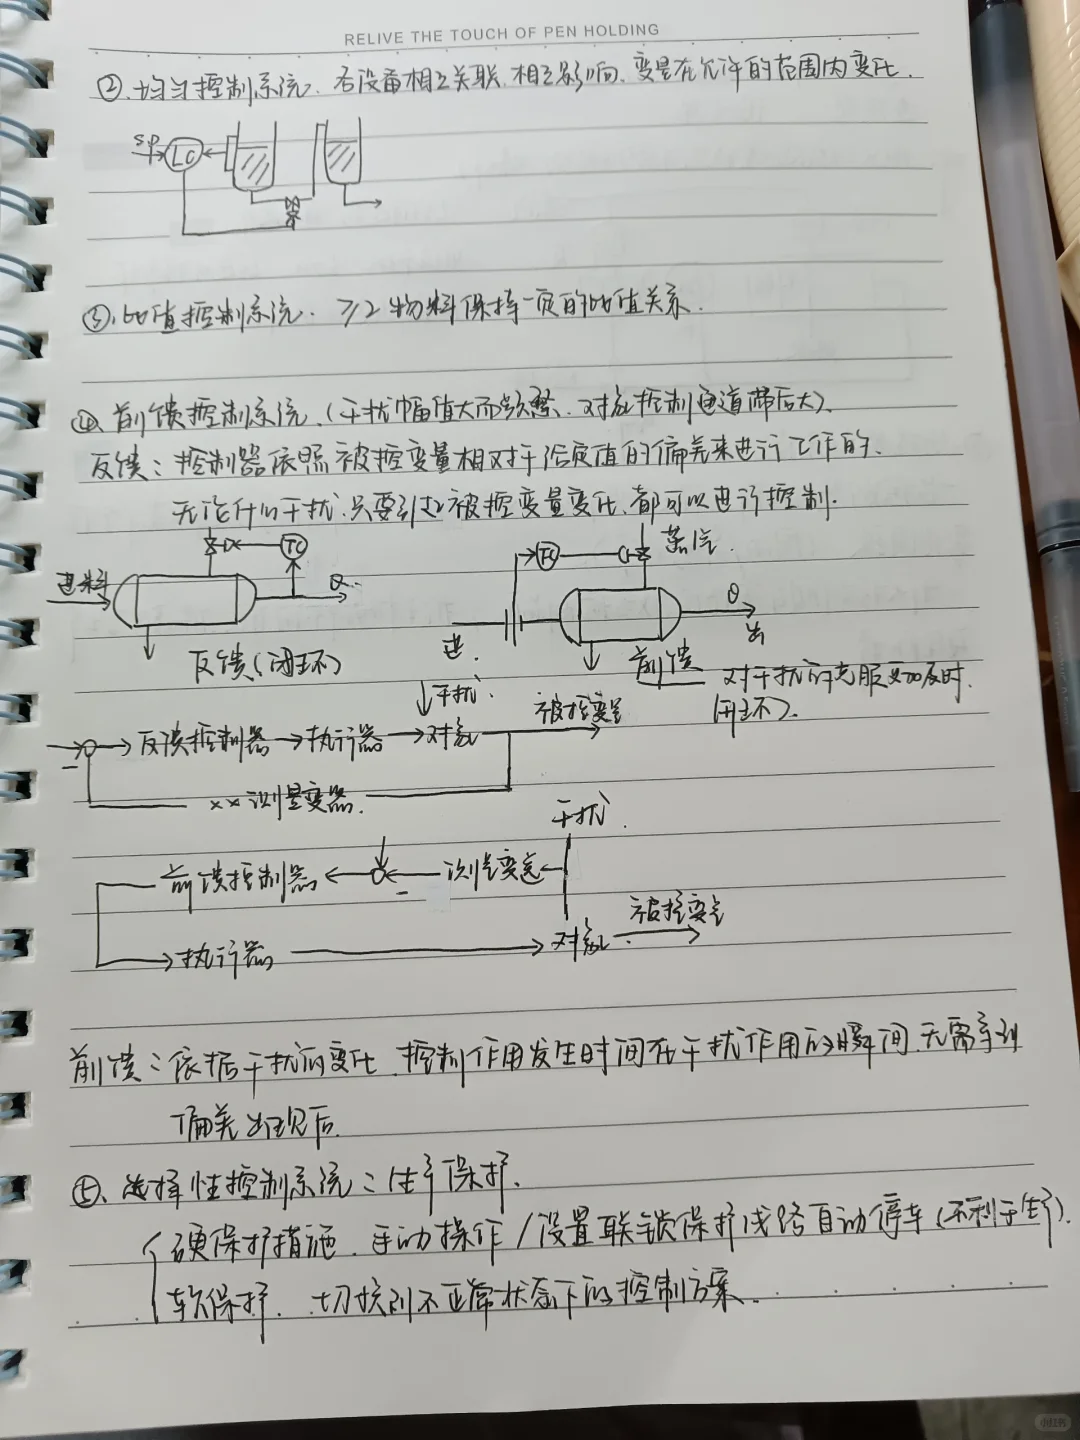 RELIVE THE TOUCH OF PEN HOLDING
②.均匀控制系统.各设备相互关联.相互影响.变量在允许的范围内变化.
SP
LC
③.比值控制系统. ≥2物料保持一定的比值关系.
④.前馈控制系统.(干扰幅值大而频繁、对象控制通道滞后大).
反馈:控制器依照被控变量相对于给定值的偏差来进行工作的.
无论什么干扰.只要引起被控变量变化.都可以进行控制.
进料
TC
θ
反馈(闭环)
FC
蒸汽.
进.
θ
出
前馈 对干扰的克服更加及时.
(开环).
↓干扰.
→反馈控制器→执行器→对象 被控变量
-
××测量变器.
干扰.
前馈控制器← ←测量变送←
-
→执行器→对象. 被控变量
前馈:依据干扰的变化.控制作用发生时间在干扰作用的瞬间.无需等到
偏差出现后.
⑤.选择性控制系统:生产保护.
{硬保护措施.手动操作/设置联锁保护线路自动停车(不利于生产).
软保护. 切换到不正常状态下的控制方案.
小红书